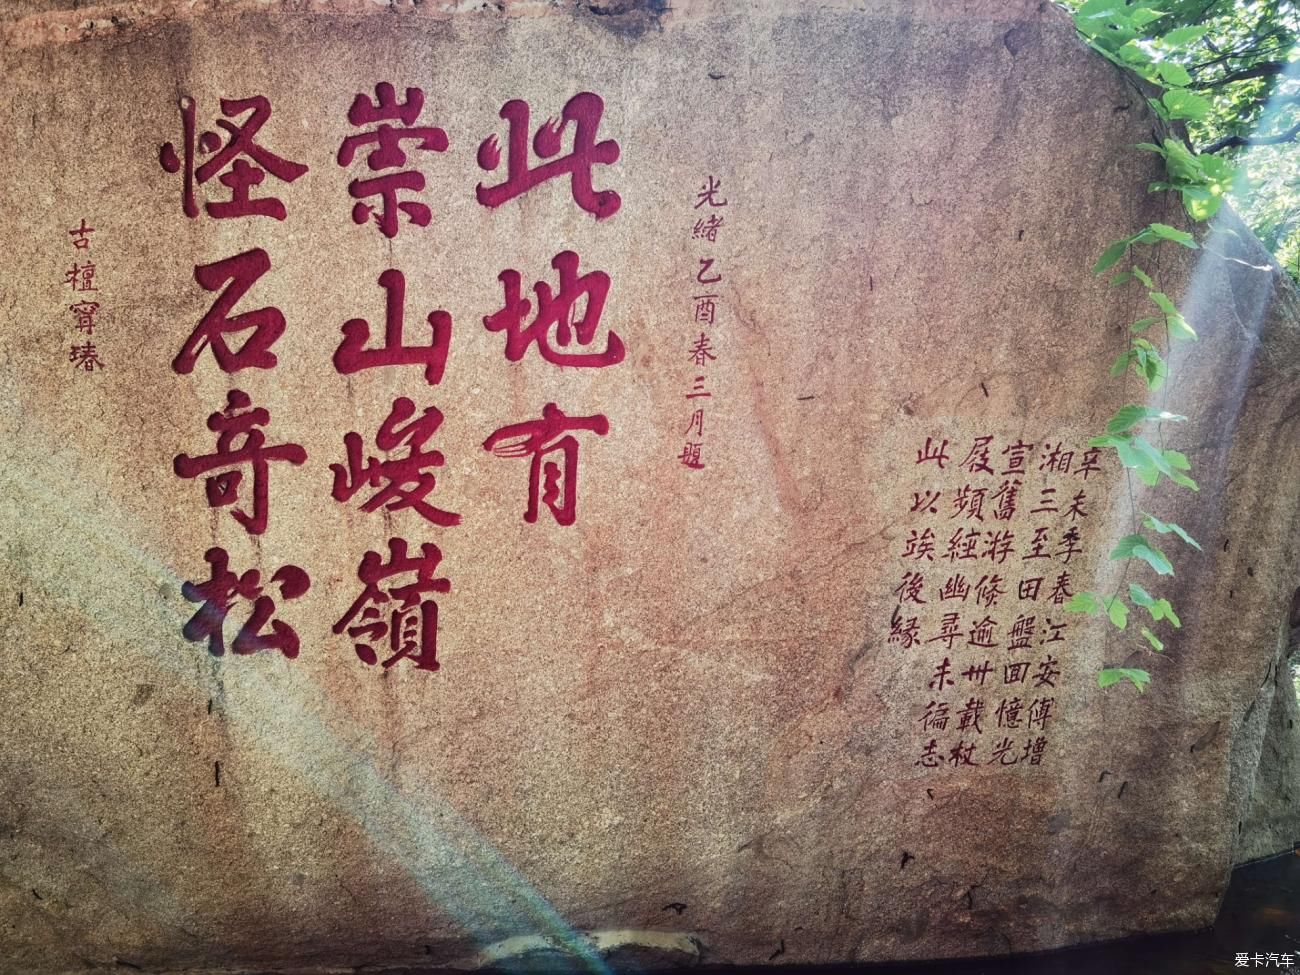 辛未季春江安傅增
湘三至田盤回憶光
宣舊游倏逾卅載杖
屐頻經幽尋未徧志
此以竢後緣
光緒乙酉春三月題
此地有
崇山峻嶺
怪石奇松
古檀甯琦
爱卡汽车